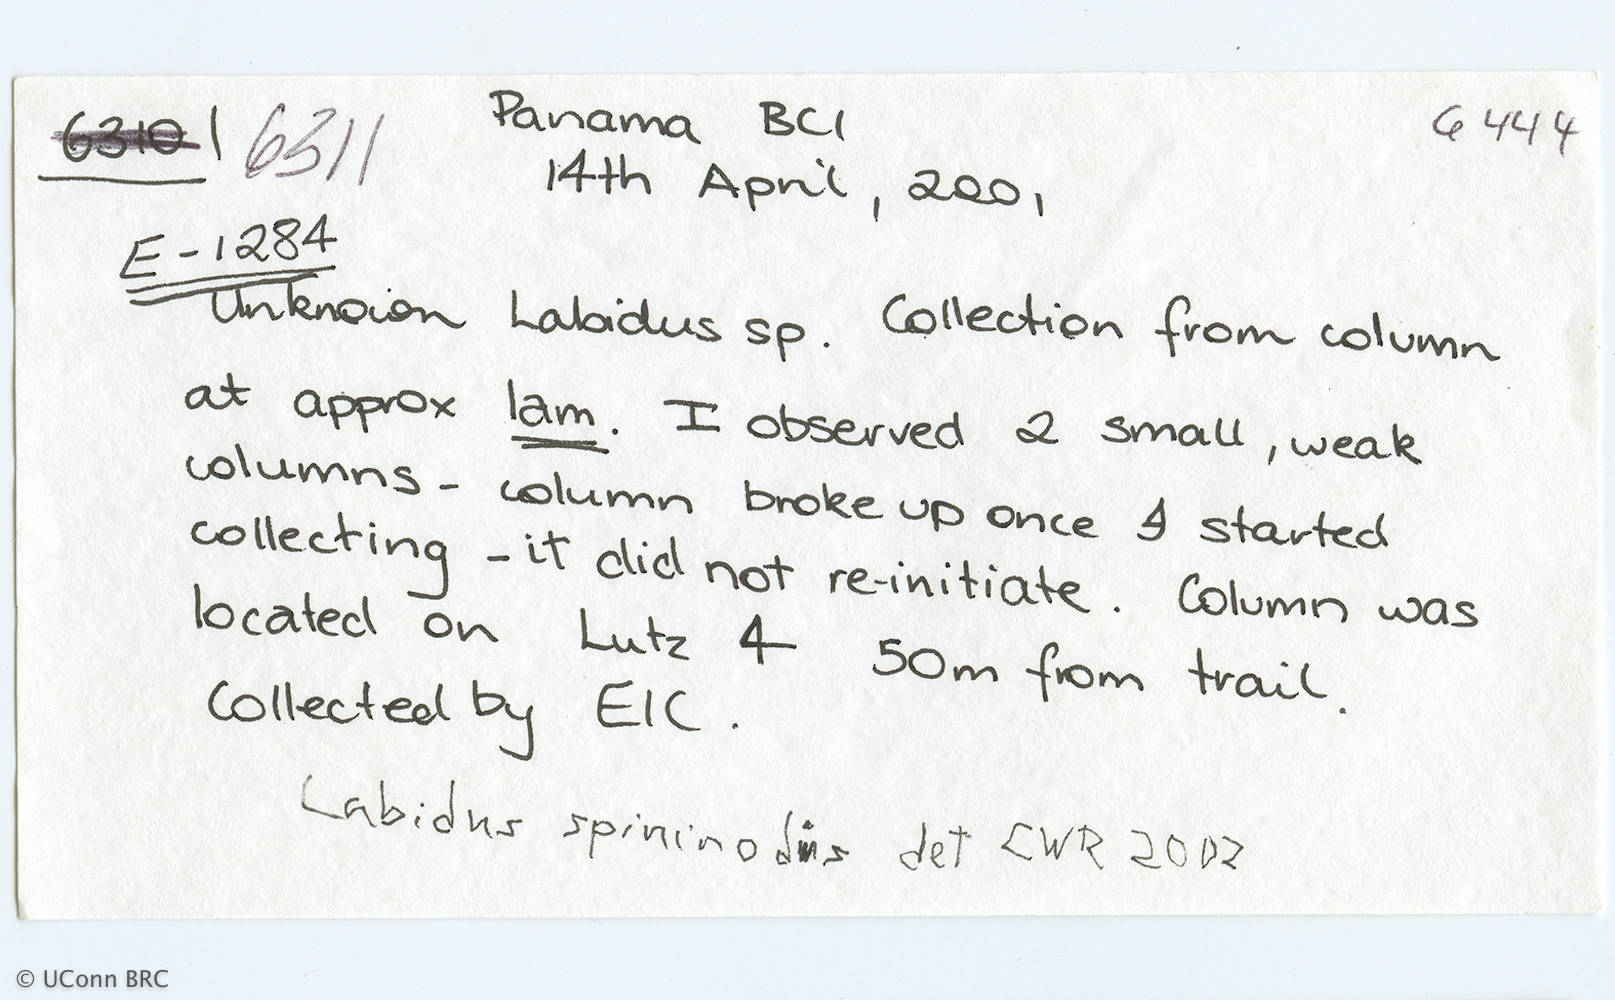 6310 | 6311 Panama BCI 6444
14th April, 2001
E-1284
Unknown Labidus sp. Collection from column
at approx 1am. I observed 2 small, weak
columns - column broke up once I started
collecting - it did not re-initiate. Column was
located on Lutz 4 50m from trail.
Collected by EIC.
Labidus spininodis det CWR 2002
© UConn BRC